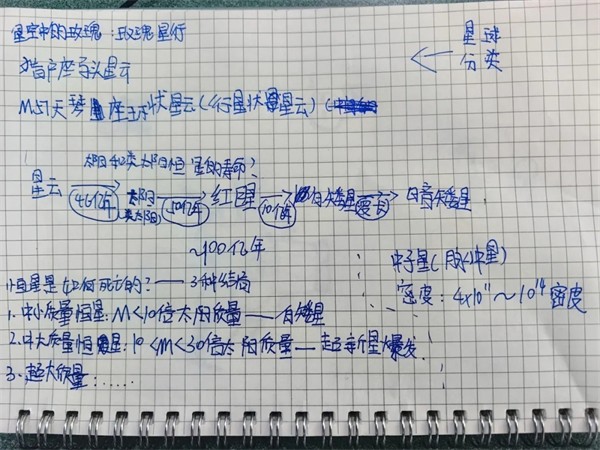 星空中的玫瑰:玫瑰星行
星球
分类
猎户座马头星云
M57天琴座环状星云(行星状星云)
太阳和类太阳恒星的寿命?
星云 46亿年 太阳 50亿年 红巨星 10亿年 白矮星 变冷 白矮星.
(类太阳)
~100亿年
恒星是如何死亡的?——3种结局
中子星(脉冲星)
密度:4×10¹¹~10¹⁴密度
1.中小质量恒星:M<10倍太阳质量——白矮星
2.中大质量恒星:10<M<30倍太阳质量—超新星爆发.
3.超大质量:......